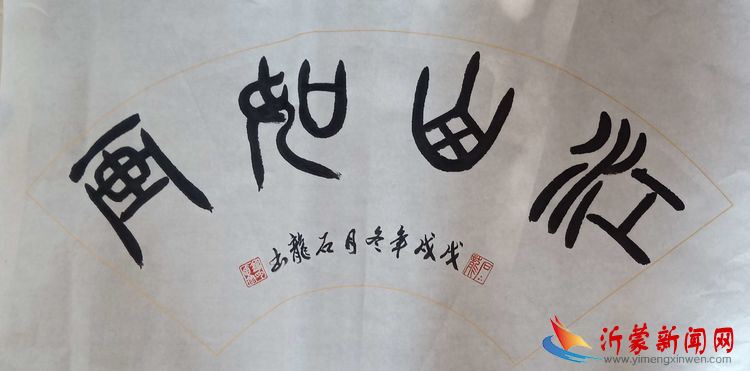 江山如画
戊戌年冬月石龍书
沂蒙新闻网
www.yimengxinwen.com